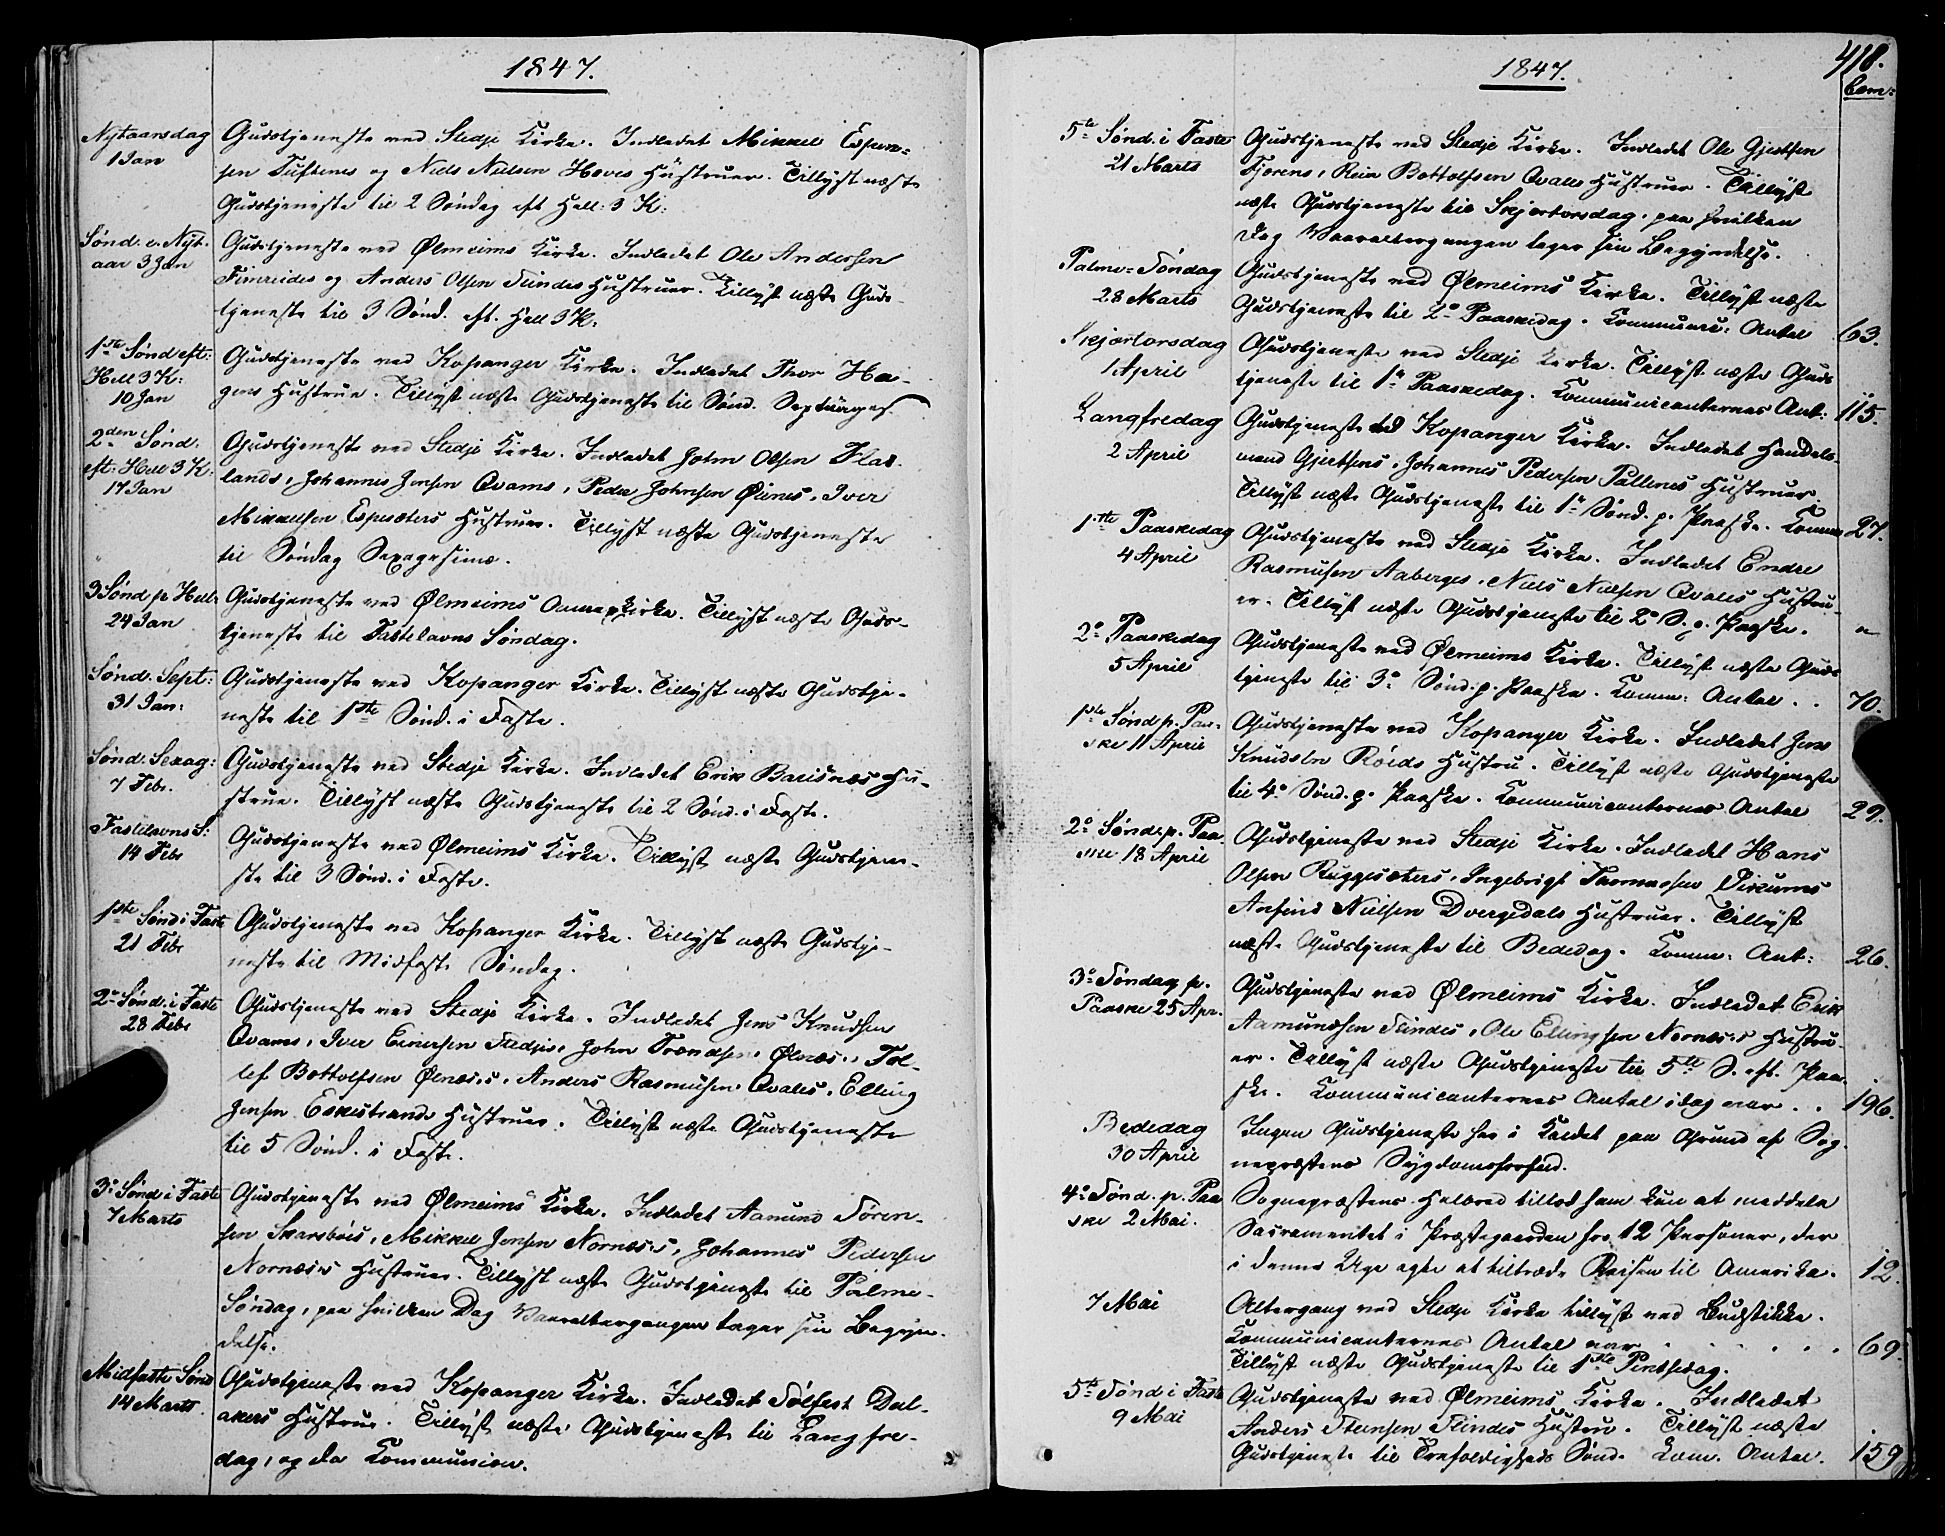 1847.
Nytaarsdag
1 Jan
Gudstjeneste ved Stedje Kirke. Indledet Mikkel Espen-
sen Tuftenes og Niels Nielsen Hoves Hustruer. Tillyst næste
Gudstjeneste til 2 Søndag eft Hell: 3 K:
Sønd. e. Nyt-
aar 3 Jan
Gudstjeneste ved Ølmeims Kirke. Indledet Ole Andersen
Fimreides og Anders Olsen Slindes Hustruer. Tillyst næste Guds-
tjeneste til 3 Sønd. eft. Hell 3 K.
1ste Sønd eft:
Hell 3 K:
10 Jan
Gudstjeneste ved Kopanger Kirke. Indledet Thor Ha-
gens Hustrue. Tillyst næste Gudstjeneste til Sønd. Septuages.
2den Sønd.
eft: Hell 3 K:
17 Jan
Gudstjeneste ved Stedje Kirke. Indledet John Olsen Flat-
lands, Johannes Jensen Qvams, Peder Johnsen Øines, Iver
Mikkelsen Espesæters Hustruer. Tillyst næste Gudstjeneste
til Søndag Sexagesimæ.
3 Sønd p Hell:
24 Jan
Gudstjeneste ved Ølmeims Annexkirke. Tillyst næste Guds-
tjeneste til Fastelavns Søndag.
Sønd. Sept:
31 Jan:
Gudstjeneste ved Kopanger Kirke. Tillyst næste Gudstje-
neste til 1ste Sønd. i Faste.
Sønd. Sexag:
7 Febr.
Gudstjeneste ved Stedje Kirke. Indledet Erik Balisnæs Hu-
strue. Tillyst næste Gudstjeneste til 2 Sønd. i Faste.
Fastelavns S:
14 Febr
Gudstjeneste ved Ølmeims Kirke. Tillyst næste Gudstjene-
ste til 3 Sønd. i Faste.
1ste Sønd i Faste
21 Febr
Gudstjeneste ved Kopanger Kirke. Tillyst næste Gudstje-
neste til Midfaste Søndag.
2den Sønd. i Faste
28 Febr
Gudstjeneste ved Stedje Kirke. Indledet Jens Knudsen
Qvams, Iver Einersen Stedjes, John Trondsen Ølnæs, Tol-
lef Bottolfsen Ølnæses, Anders Rasmusen Qvales, Elling
Jensen Eskestrands Hustruer. Tillyst næste Gudstjeneste
til 5 Sønd. i Faste.
3die Sønd i Faste
7 Marts
Gudstjeneste ved Ølmeims Kirke. Indledet Aamund Søren-
sen Skarsbøis, Mikkel Jensen Nornæses, Johannes Pedersen
Nornæses Hustruer. Tillyst næste Gudstjeneste til Palme-
Søndag, paa hvilken Dag Vaaraltergangen tager sin Begyn-
delse.
Midfaste Sønd
14 Marts
Gudstjeneste ved Kopanger Kirke. Indledet Tølfest Dal-
akers Hustrue. Tillyst næste Gudstjeneste til Langfre-
dag, og da Kommunion.
1847.
418.
Com:
5te Sønd. i Faste
21 Marts
Gudstjeneste ved Stedje Kirke. Indledet Ole Gjertsen
Fjørens, Rein Bottolfsen Qvales Hustruer. Tillyst
næste Gudstjeneste til Skjertorsdag, paa hvilken
Dag Vaaraltergangen tager sin Begyndelse.
Palme-Søndag
28 Marts
Gudstjeneste ved Ølmeims Kirke. Tillyst næste
Gudstjeneste til 2den Paaskedag. Communic: Antal 63.
Skjertorsdag
1 April
Gudstjeneste ved Stedje Kirke. Tillyst næste Guds
tjeneste til 1ste Paaskedag. Kommunicanternes Ant: 115.
Langfredag
2 April
Gudstjeneste ved Kopanger Kirke. Indledet Handels-
mand Gjertsens, Johannes Pedersen Pallenes Hustruer.
Tillyst næste Gudstjeneste til 1ste Sønd. p. Paaske. Komm: 27.
1ste Paaskedag
4 April
Gudstjeneste ved Stedje Kirke. Indledet Endre
Rasmusen Aaberges, Niels Nielsen Qvales Hustru-
er. Tillyst næste Gudstjeneste til 2den S. p. Paaske. "
2den Paaskedag
5 April
Gudstjeneste ved Ølmeims Kirke. Tillyst næste Guds
tjeneste til 3die Sønd. p. Paaske. Komm: Antal . . 70.
1ste Sønd p. Paa-
ske 11 April
Gudstjeneste ved Kopanger Kirke. Indledet Jens
Knudsen Røids Hustru. Tillyst næste Gudstjeneste
til 4de Sønd. p. Paaske. Kommunicanternes Antal 29.
2den Sønd. p. Paa
ske 18 April
Gudstjeneste ved Stedje Kirke. Indledet Hans
Olsen Ruggesæters, Ingebrigt Thomassen
Anfind Nielsen Dvergedals Hustruer. Tillyst
næste Gudstjeneste til Bededag. Komm: Ant: 26.
3die Søndag p.
Paaske 25 Apr.
Gudstjeneste ved Ølmeims Kirke. Indledet Erik
Aamundsen Slindes, Ole Ellingsen Nornæses Hustru-
er. Tillyst næste Gudstjeneste til 5te S. eft. Paa-
ske. Kommunicanternes Antal idag var . . 196.
Bededag
30 April
Ingen Gudstjeneste her i Kaldet paa Grund af Sog-
nepræstens Sygdomsforfald.
4de Sønd. p. Paa
ske 2 Mai.
Sognepræstens Helbred tillod ham kun at meddele
Sacramentet i Præstegaarden for 12 Personer, der
i denne Uge agte at tiltræde Reisen til Amerika. 12.
7 Mai
Altergang ved Stedje Kirke tillyst ved Budstikke.
Kommunicanternes Antal var . . . . . . 69.
Tillyst næste Gudstjeneste til 1ste Pintsedag.
5te Sønd i Faste
9 Mai
Gudstjeneste ved Ølmeims Kirke. Indledet
Anders Steensen Slindes Hustru. Tillyst næste
Gudstjeneste til Trefoldigheds Sønd. Kom. Antal. 159